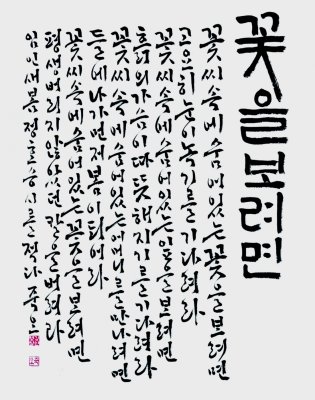 꽃을 보려면
꽃씨 속에 숨어있는 꽃을 보려면
고요히 눈이 녹기를 기다려라
꽃씨 속에 숨어있는 잎을 보려면
흙의 가슴이 따뜻해지기를 기다려라
꽃씨 속에 숨어있는 어머니를 만나려면
들에 나가 먼저 봄이 되어라
꽃씨 속에 숨어있는 꽃을 보려면
평생 버리지 않았던 칼을 버려라
임인새봄 정호승 시를 적다